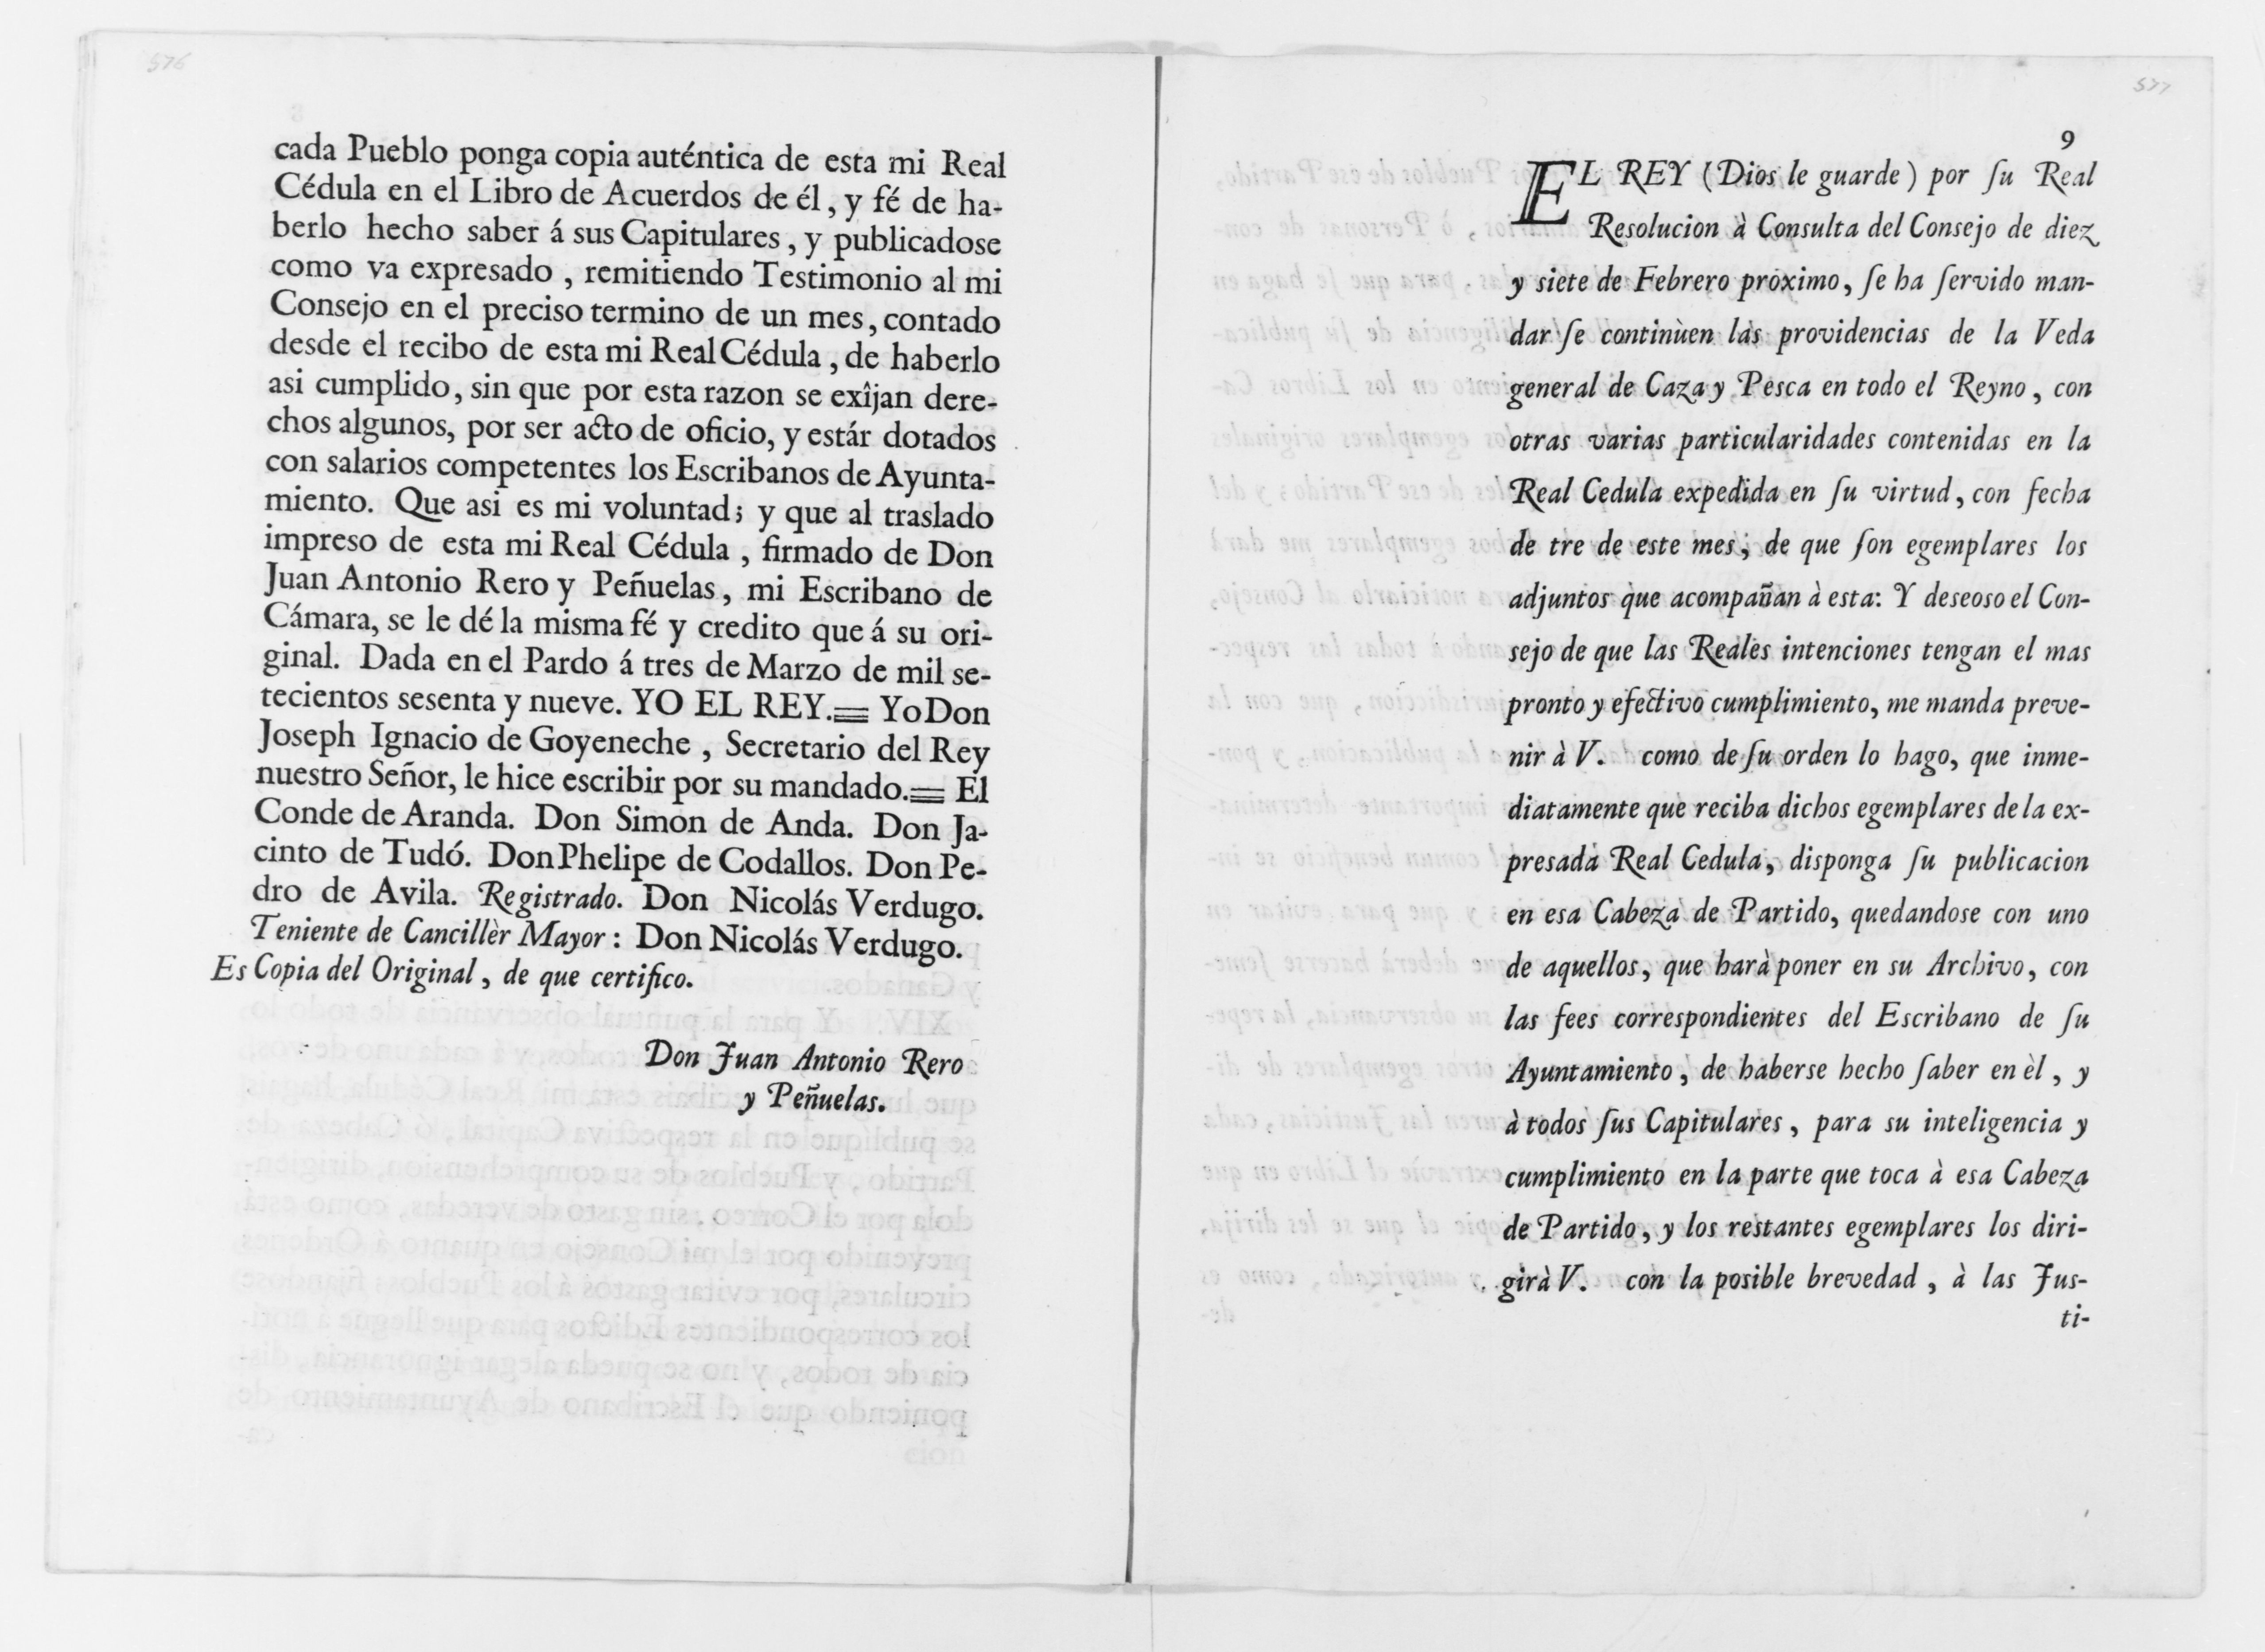 576
cada Pueblo ponga copia auténtica de esta mi Real
Cédula en el Libro de Acuerdos de él, y fé de ha-
berlo hecho saber á sus Capitulares, y publicadose
como va expresado, remitiendo Testimonio al mi
Consejo en el preciso termino de un mes, contado
desde el recibo de esta mi Real Cédula, de haberlo
asi cumplido, sin que por esta razon se exîjan dere-
chos algunos, por ser acto de oficio, y estár dotados
con salarios competentes los Escribanos de Ayunta-
miento. Que asi es mi voluntad; y que al traslado
impreso de esta mi Real Cédula, firmado de Don
Juan Antonio Rero y Peñuelas, mi Escribano de
Cámara, se le dé la misma fé y credito que á su ori-
ginal. Dada en el Pardo á tres de Marzo de mil se-
tecientos sesenta y nueve. YO EL REY.= Yo Don
Joseph Ignacio de Goyeneche, Secretario del Rey
nuestro Señor, le hice escribir por su mandado.= El
Conde de Aranda. Don Simon de Anda. Don Ja-
cinto de Tudó. Don Phelipe de Codallos. Don Pe-
dro de Avila. Registrado. Don Nicolás Verdugo.
Teniente de Cancillèr Mayor: Don Nicolás Verdugo.
Es Copia del Original, de que certifico.
Don Juan Antonio Rero
y Peñuelas.
577
9
EL REY (Dios le guarde) por ſu Real
Resolucion à Consulta del Consejo de diez
y siete de Febrero próximo, ſe ha ſervido man-
dar ſe continùen las providencias de la Veda
general de Caza y Pesca en todo el Reyno, con
otras varias particularidades contenidas en la
Real Cedula expedida en ſu virtud, con fecha
de tre de este mes; de que ſon egemplares los
adjuntos que acompañan à esta: Y deseoso el Con-
sejo de que las Reales intenciones tengan el mas
pronto y efectivo cumplimiento, me manda preve-
nir à V. como de ſu orden lo hago, que inme-
diatamente que reciba dichos egemplares de la ex-
presada Real Cedula, disponga ſu publicacion
en esa Cabeza de Partido, quedandose con uno
de aquellos, que harà poner en su Archivo, con
las fees correspondientes del Escribano de ſu
Ayuntamiento, de haberse hecho ſaber en èl, y
à todos ſus Capitulares, para su inteligencia y
cumplimiento en la parte que toca à esa Cabeza
de Partido, y los restantes egemplares los diri-
girà V. con la posible brevedad, à las Jus-
ti-